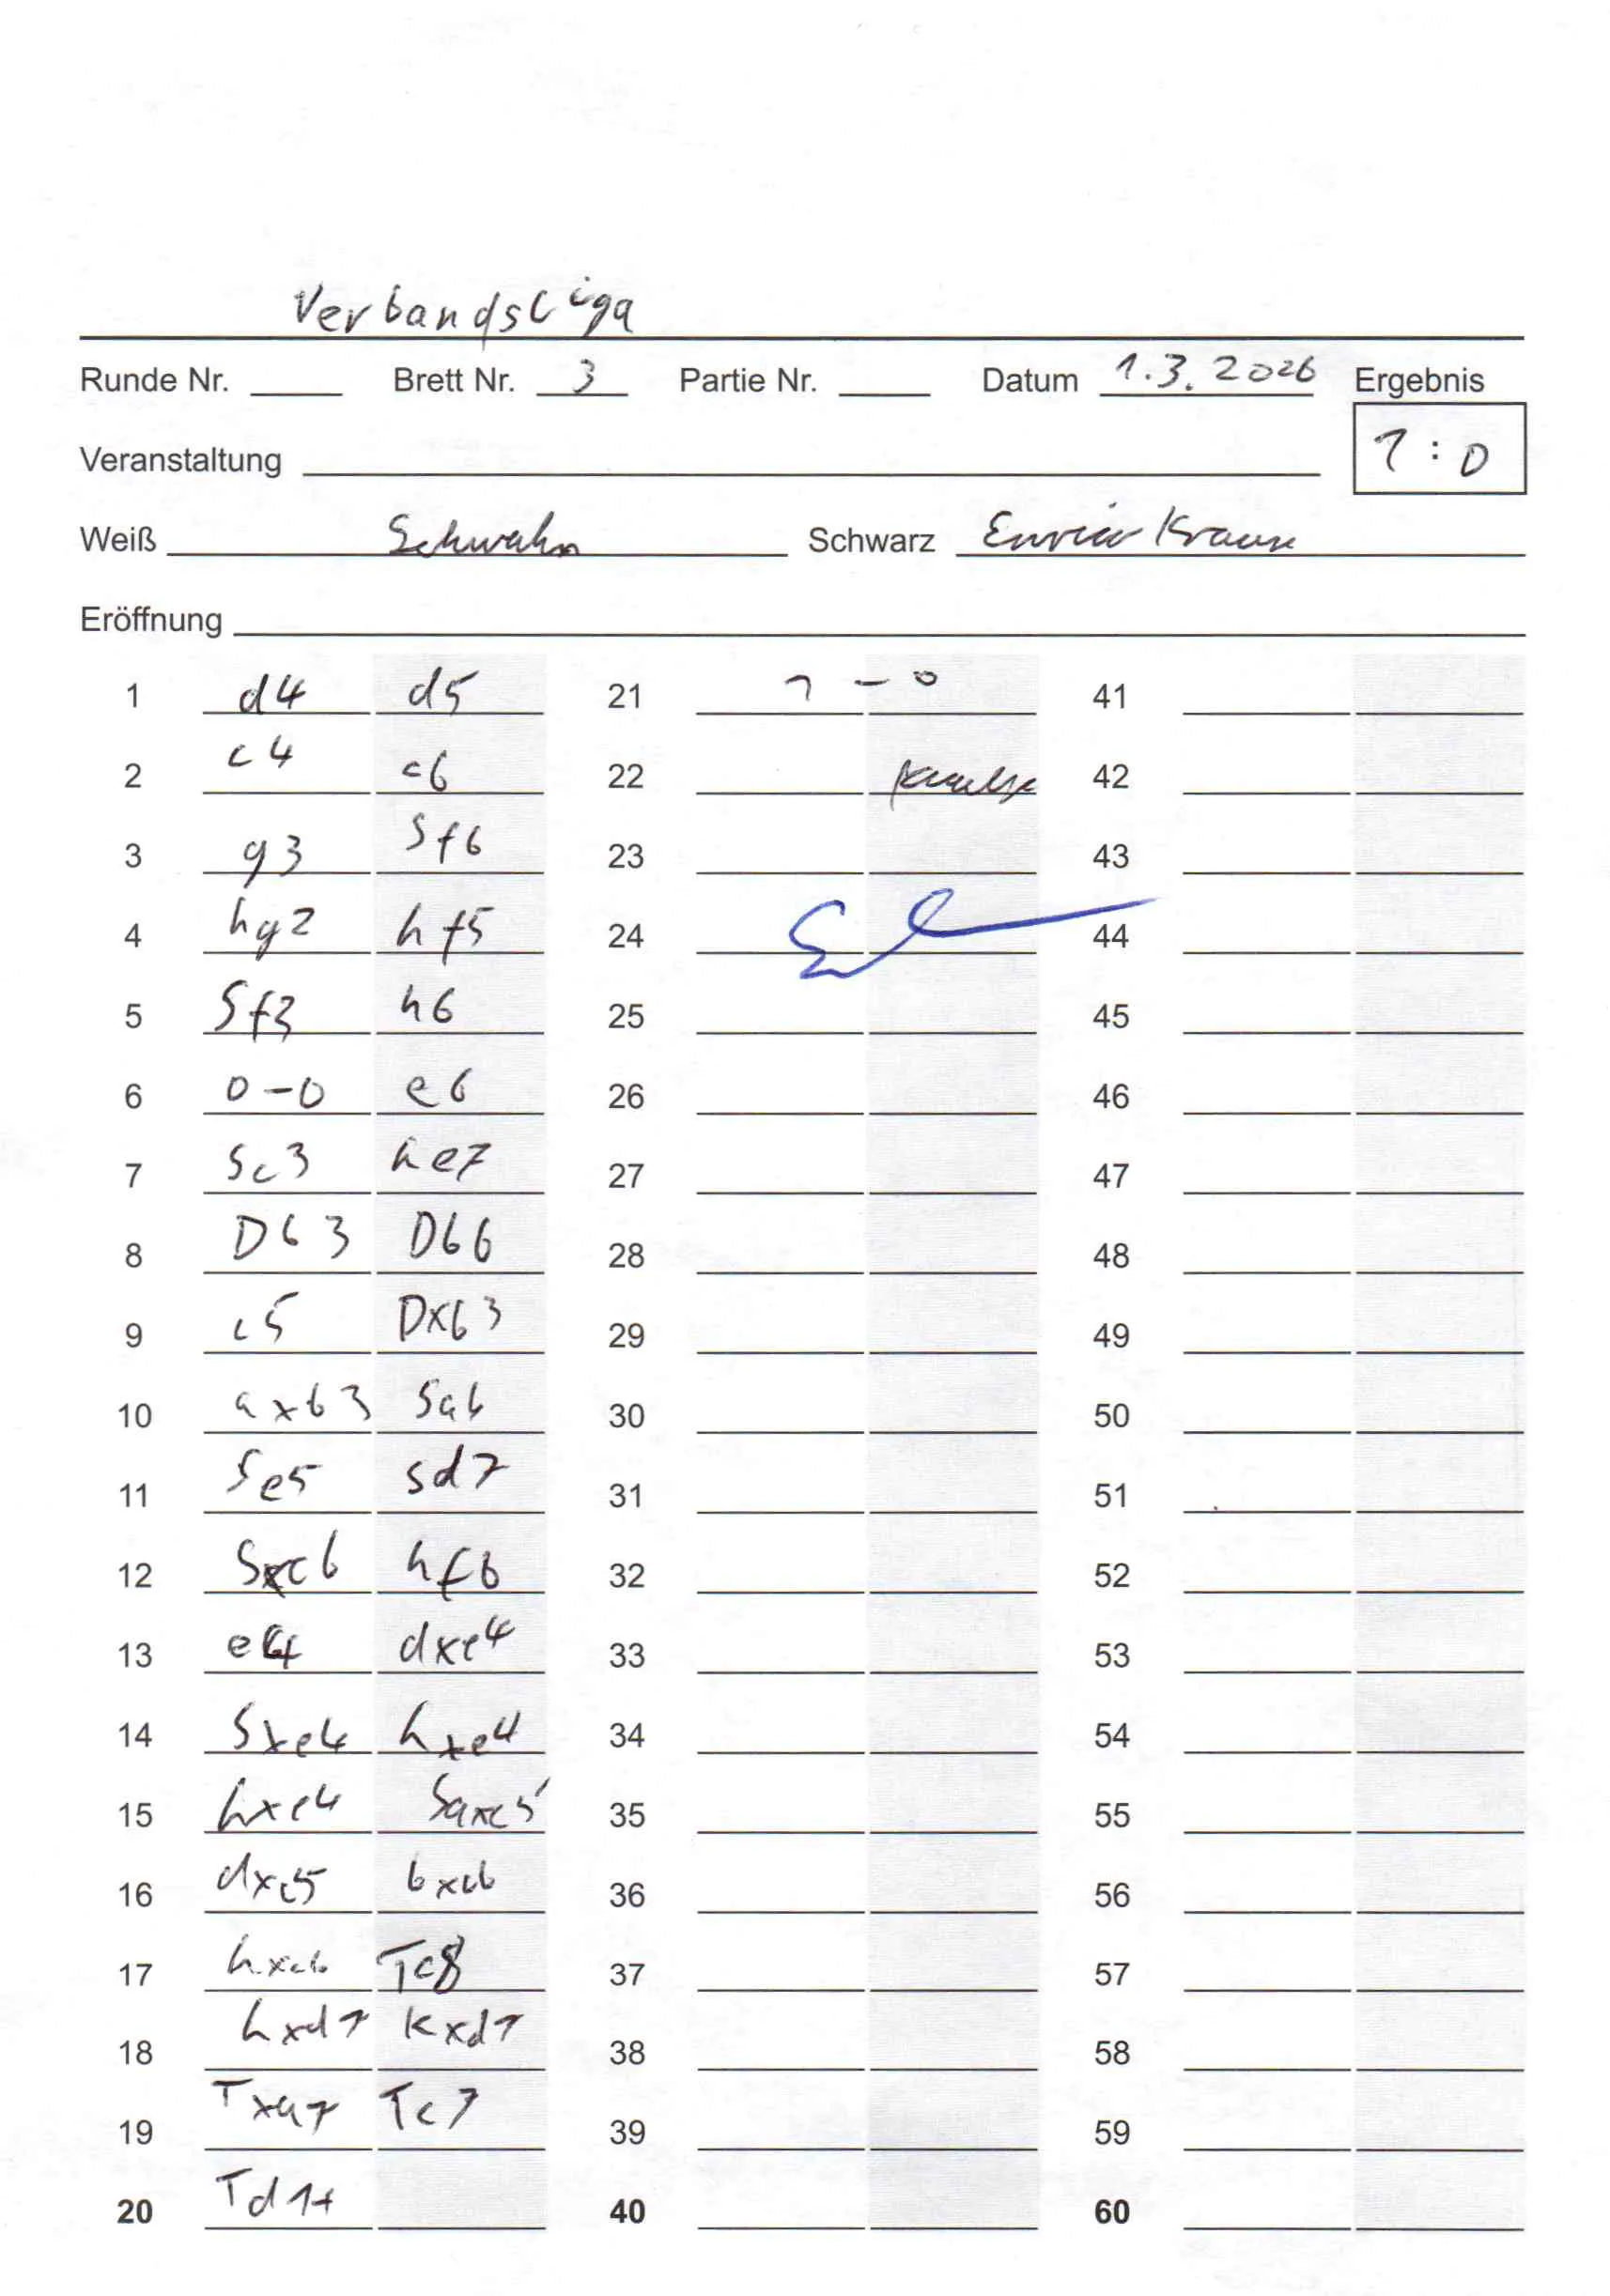 Verbandsliga
Runde Nr. Brett Nr. 3 Partie Nr. Datum 1.3.2026 Ergebnis
1:0
Veranstaltung
Weiß Schwahn Schwarz Enrico Krause
Eröffnung
1 d4 d5 21 1-0 41
2 c4 c6 22 42
3 g3 Sf6 23 43
4 hg2 hf5 24 44
5 Sf3 h6 25 45
6 0-0 e6 26 46
7 Sc3 he7 27 47
8 Db3 Db6 28 48
9 c5 Dxb3 29 49
10 axb3 Sa6 30 50
11 Se5 Sd7 31 51
12 Sxc6 hf6 32 52
13 e4 dxe4 33 53
14 Sxe4 hxe4 34 54
15 hxe4 Saxc5 35 55
16 dxc5 bxc6 36 56
17 hxc6 Tc8 37 57
18 hxd7 Kxd7 38 58
19 Txa7 Tc7 39 59
20 Td1+ 40 60